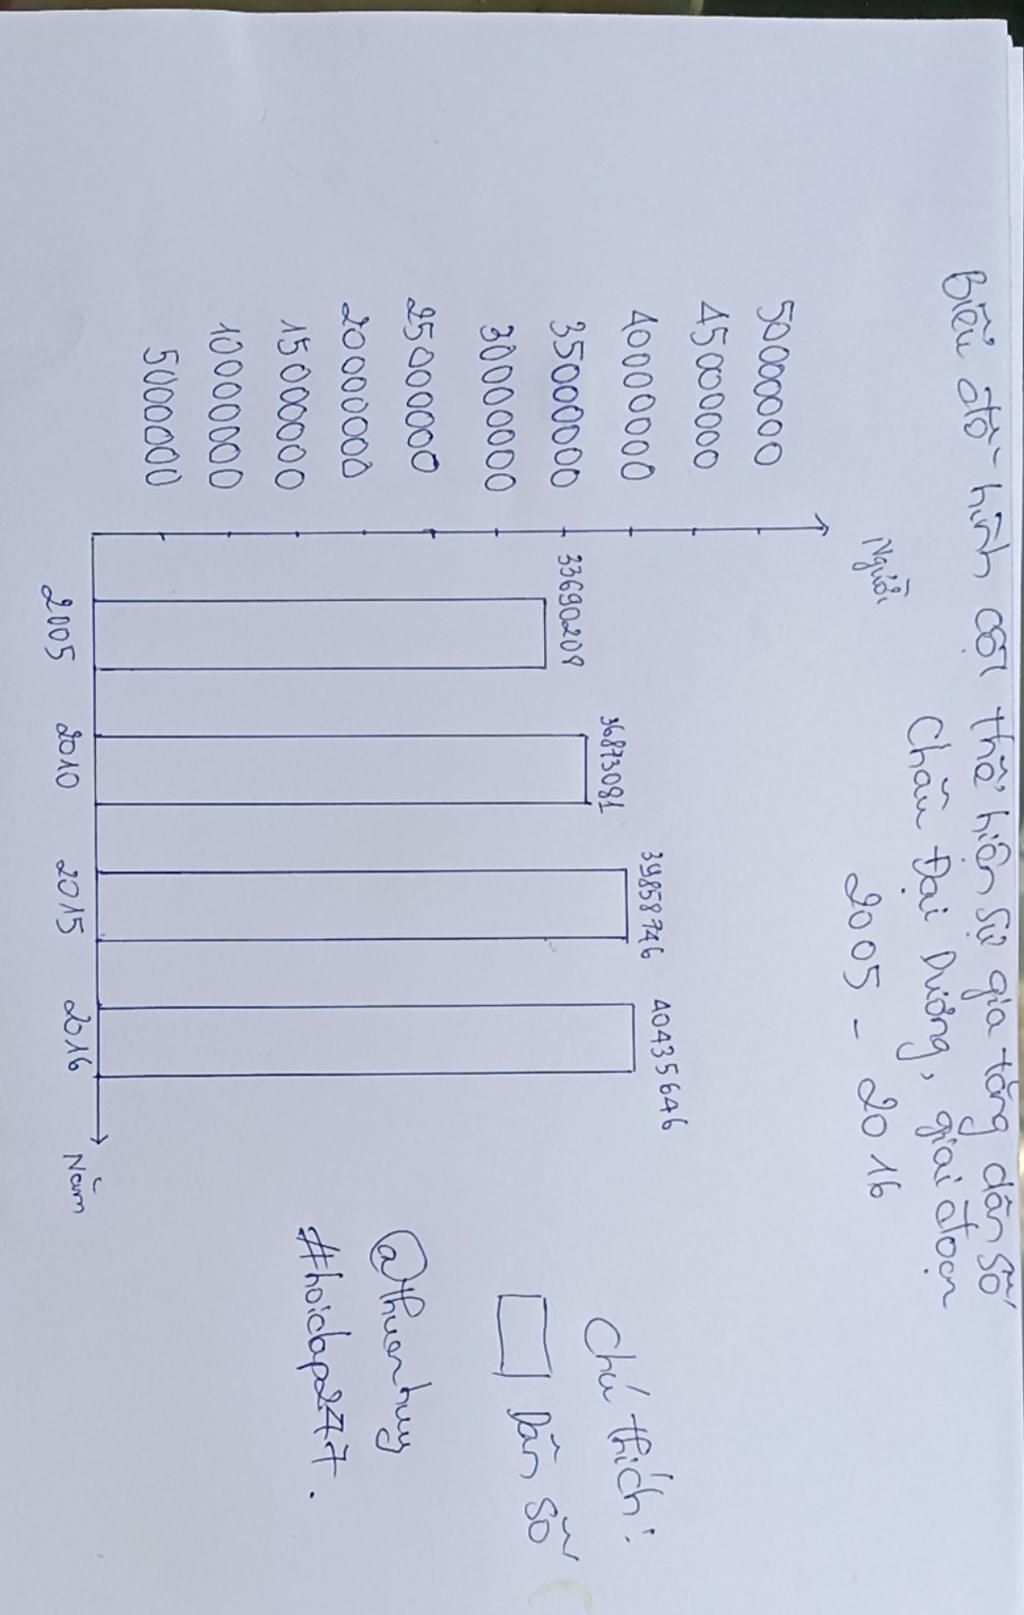 Biểu đồ hình cột thể hiện sự gia tăng dân số
Châu Đại Dương, giai đoạn
2005 - 2016
Người
50000000
45000000
40000000
35000000
30000000
25000000
20000000
15000000
10000000
5000000
33690209
36873081
39858746
40435646
2005
2010
2015
2016
Năm
Chú thích:
Dân số
@thuanhuy
#hoidap247.